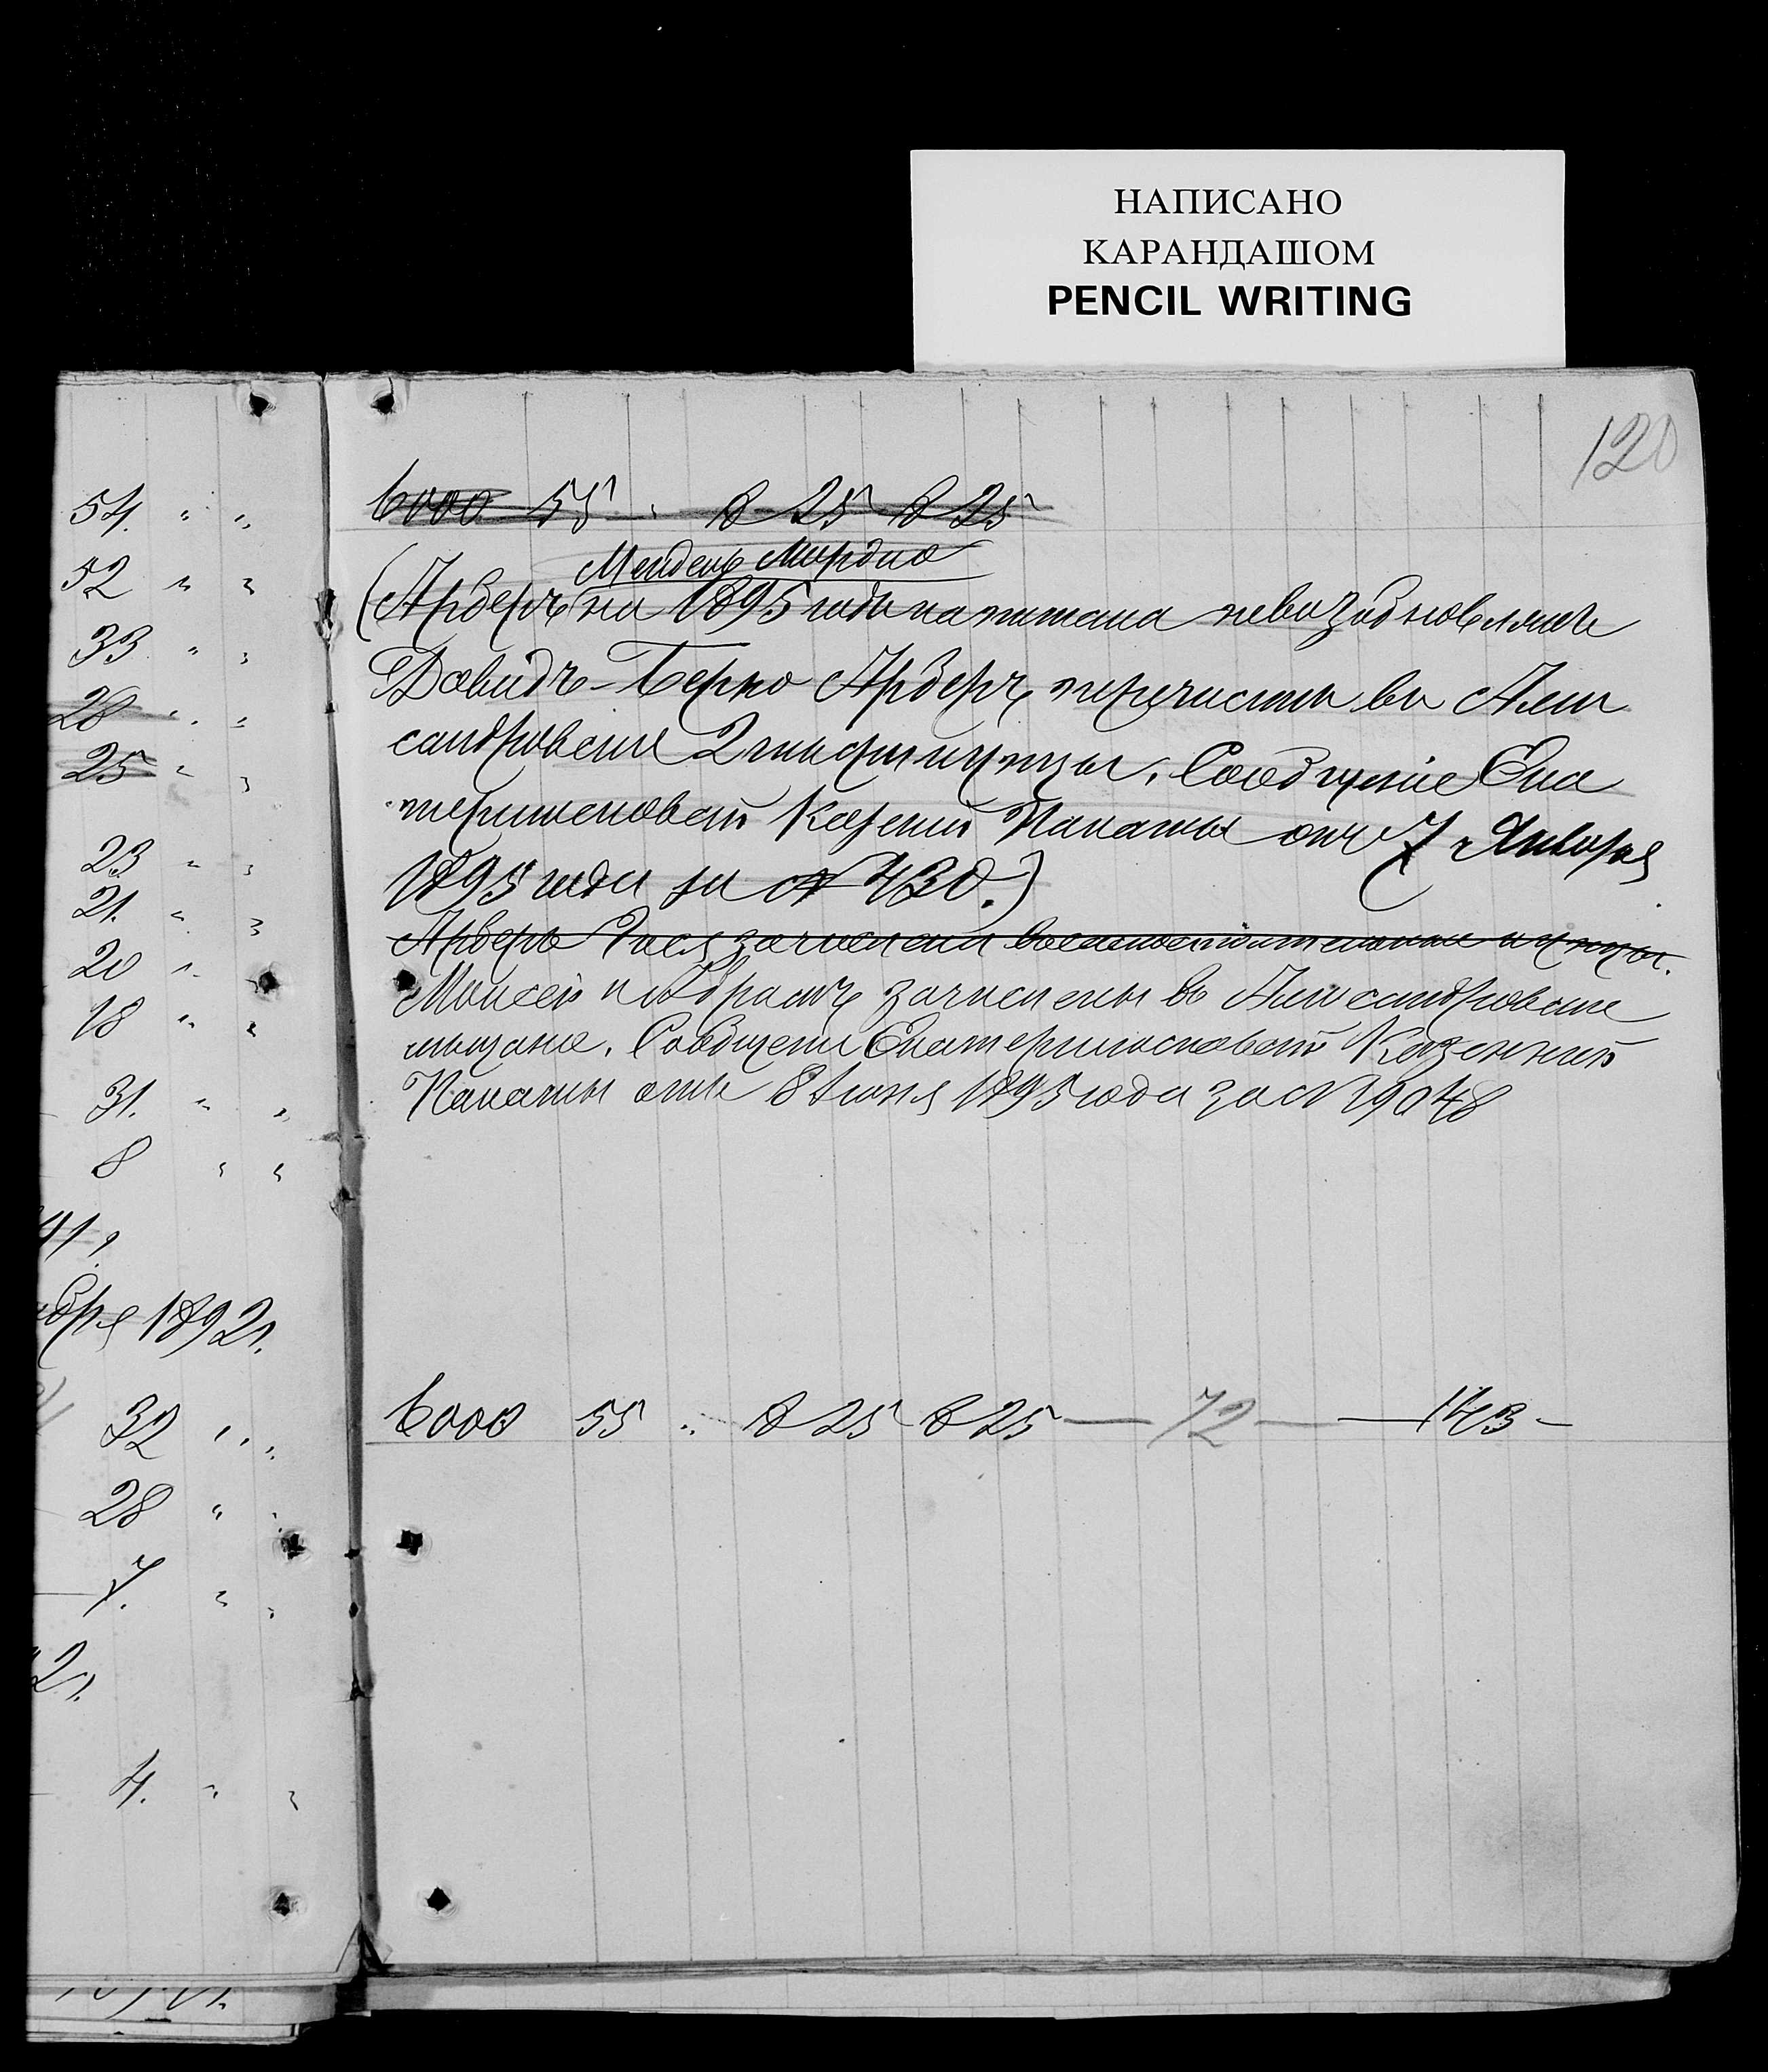 НАПИСАНО
КАРАНДАШОМ
PENCIL WRITING
120
54. " "
52 " "
33 " "
28 " "
25 " "
23 " "
21. " "
20 "
18 " "
31. " "
8 " "
41,
ября 1892 г.
32 " "
28 "
7. " "
2 г.
4. " "
6000 55 " 8 25 8 25
Мендель Мордко
(Арберъ на 1895 года капитала невозобновляли
Давидъ-Берко Арберъ перечисленъ въ Алек
сандровскіе 2 гильдіи купцы. Сообщеніе Ека
теринославской Казенной Палаты отъ 7 Января
1895 года за № 430.)
Арберъ зачислены купцы.
Моисей и Абрамъ зачислены въ Александровскіе
мещане. Сообщеніе Екатеринославской Казенной
Палаты отъ 8 Іюня 1895 года за № 19048
6000 55 " 8 25 8 25 — 72 — — 143 —